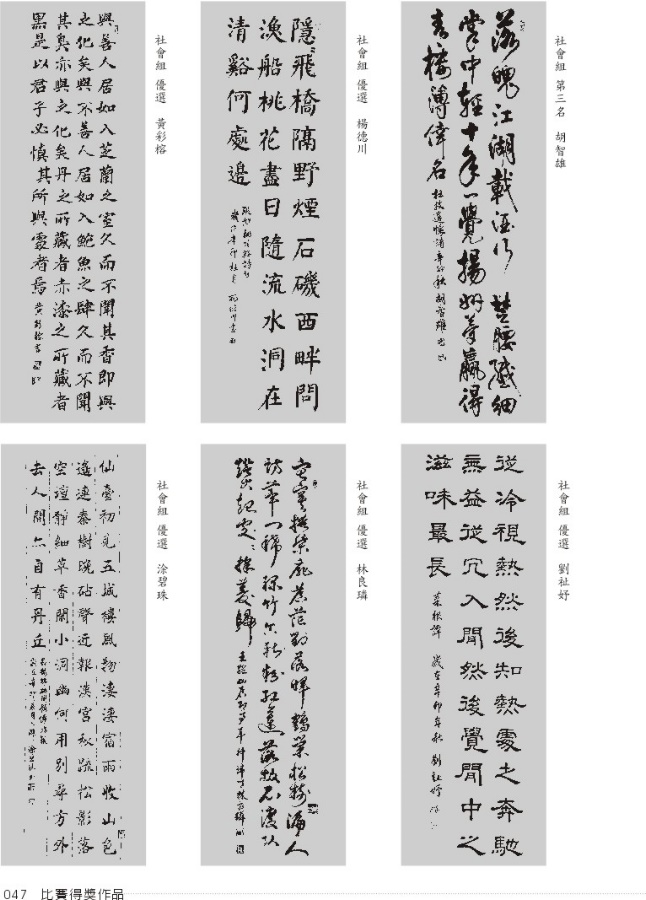 社會組 第三名 胡智雄
落魄江湖載酒行 楚腰纖細
掌中輕十年一覺揚州夢贏得
青樓薄倖名 杜牧遣懷詩 辛卯秋 胡智雄書
社會組 優選 楊德川
隱〻飛橋隔野煙石磯西畔問
漁船桃花盡日隨流水洞在
清谿何處邊
社會組 優選 黃彩榕
與善人居如入芝蘭之室久而不聞其香即與
之化矣與不善人居如入鮑魚之肆久而不聞
其臭亦與之化矣丹之所藏者赤漆之所藏者
黑是以君子必慎其所與處者焉 黃彩榕書
社會組 優選 劉祉妤
從冷視熱然後知熱處之奔馳
無益從冗入閒然後覺閒中之
滋味最長 菜根譚 歲在辛卯年秋 劉祉妤
社會組 優選 林良璘
寂寞掩柴扉蒼茫對落暉鶴巢松樹遍人
訪蓽門稀綠竹含新粉紅蓮落故衣渡頭
燈火起處〻採菱歸 王維山居即事
社會組 優選 涂碧珠
仙臺初見五城樓風物淒淒宿雨收山色
遙連秦樹晚砧聲近報漢宮秋疏松影落
空壇靜細草香閒小洞幽何用別尋方外
去人間亦自有丹丘
047 比賽得獎作品